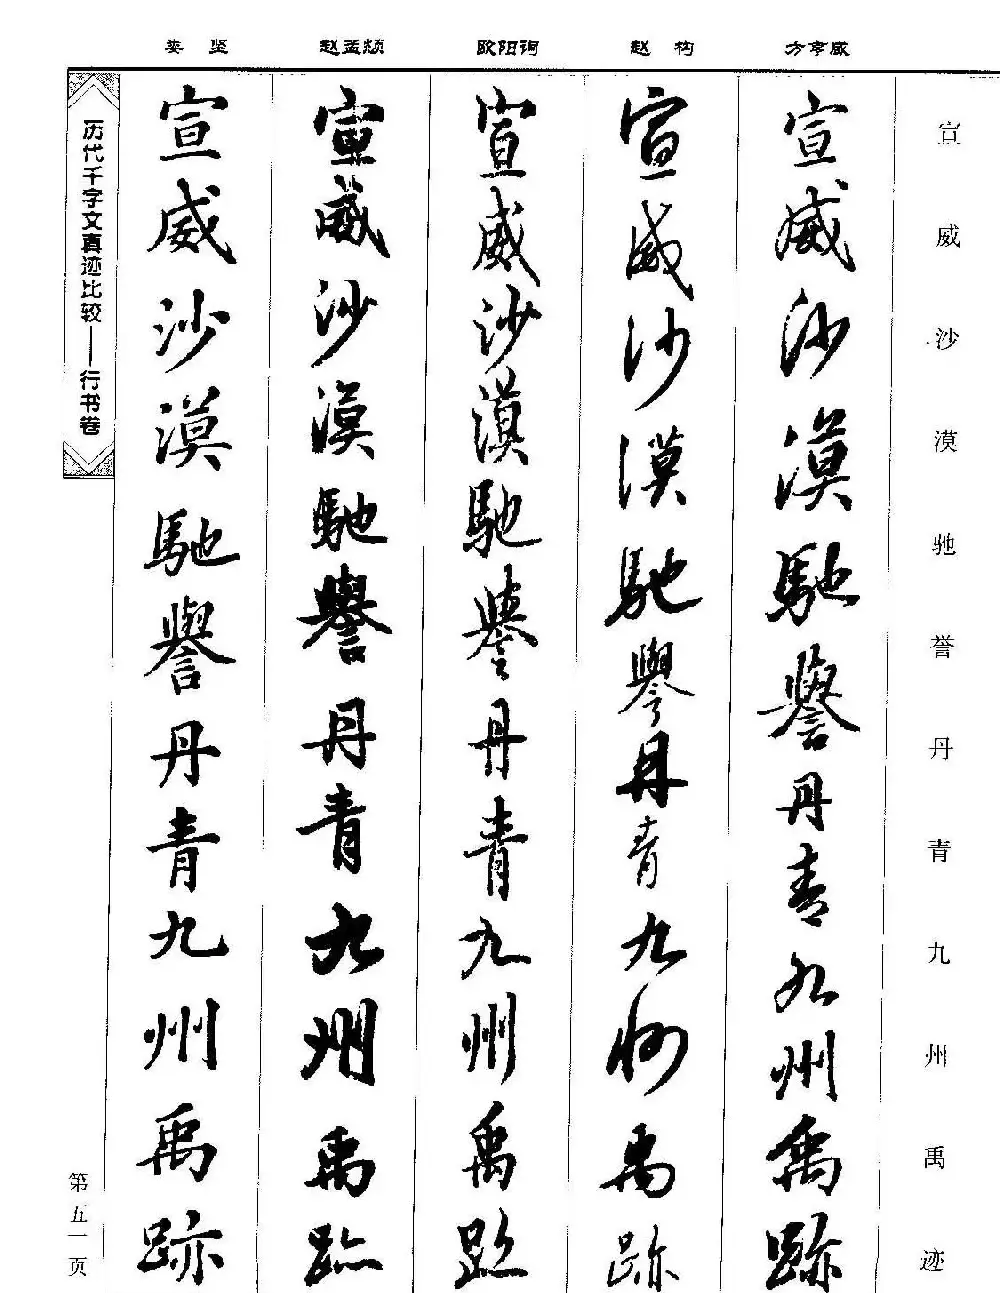 娄坚 赵孟頫 欧阳询 赵构 方亨咸
宣威沙漠驰誉丹青九州禹迹
宣威沙漠馳譽丹青九州禹跡
宣威沙漠馳譽丹青九州禹跡
宣威沙漠馳譽丹青九州禹跡
宣威沙漠馳譽丹青九州禹跡
宣威沙漠馳譽丹青九州禹跡
历代千字文真迹比较——行书卷
第五一页